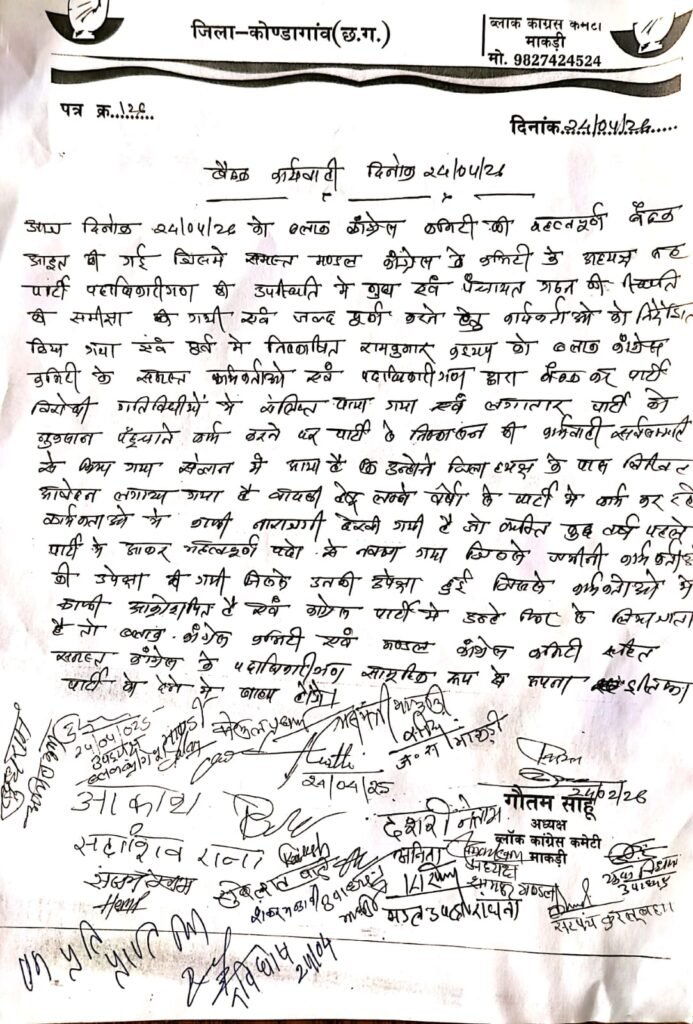 जिला-कोण्डागांव(छ.ग.)
ब्लाक कांग्रेस कमेटी
माकड़ी
मो. 9827424524
पत्र क्र. 126
दिनांक 24/04/26
बैठक कार्यवाही दिनांक 24/04/26
आज दिनांक 24/04/26 को ब्लाक कांग्रेस कमिटी की महत्वपूर्ण बैठक
आहुत की गई जिसमे समस्त मण्डल कांग्रेस के कमिटी के अध्यक्ष
पार्टी पदाधिकारीगण की उपस्थिति मे बुथ एवं पंचायत गठन की स्थिति
की समीक्षा की गयी एवं जल्द पूर्ण करने हेतु कार्यकर्ताओ को निर्देशित
किया गया एवं पूर्व मे निष्काषित रामकुमार कश्यप को ब्लाक कांग्रेस
कमिटी के समस्त कार्यकर्ताओ एवं पदाधिकारीगण द्वारा बैठक कर पार्टी
विरोधी गतिविधीयों मे संलिप्त पाया गया एवं लगातार पार्टी को
नुकसान पहुँचाने कार्य करने पर पार्टी से निष्कासन की कार्यवाही सर्वसम्मति
से किया गया संज्ञान मे आया है कि उन्होने जिला अध्यक्ष के पास लिखित
आवेदन लगाया गया है वापसी हेतु लम्बे वर्षो से पार्टी मे कार्य कर रहे
कार्यकर्ताओ मे काफी नाराजगी देखी गयी है जो व्यक्ति कुछ वर्ष पहले
पार्टी मे आकर महत्वपूर्ण पदो से नवाजा गया जिससे जमीनी कार्यकर्ताओ
की उपेक्षा की गयी जिससे उनकी उपेक्षा हुई जिससे कार्यकर्ताओ मे
काफी आक्रोशित है एवं कांग्रेस पार्टी मे उन्हे फिर से लिया जाता
है तो ब्लाक कांग्रेस कमिटी एवं मण्डल कांग्रेस कमिटी सहित
समस्त कांग्रेस के पदाधिकारीगण सामूहिक रूप से अपना इस्तिफा
पार्टी को देने मे बाध्य होंगे।
24/04/025
उपाध्यक्ष
ज.स. माकड़ी
24/04/25
24/02/26
आकाश
गौतम साहू
अध्यक्ष
ब्लॉक कांग्रेस कमेटी
माकड़ी
देशरी नेताम
सदाशिव राना
अनिता
अध्यक्ष
उपाध्यक्ष
सरपंच
एक प्रति प्राप्त किया
24/04